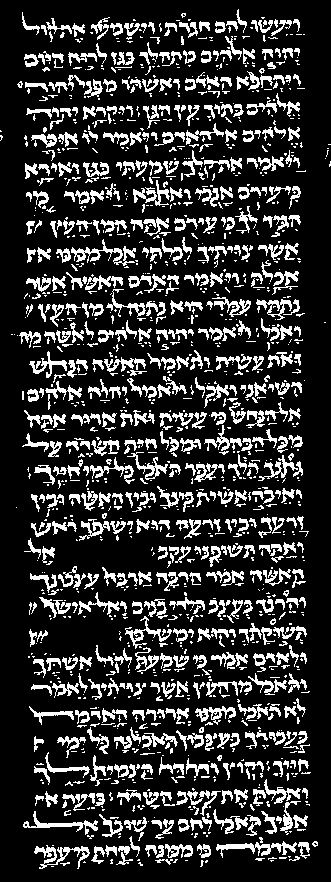 ויעשו להם חגרת׃ וישמעו את קול
יהוה אלהים מתהלך בגן לרוח היום
ויתחבא האדם ואשתו מפני יהוה
אלהים בתוך עץ הגן׃ ויקרא יהוה
אלהים אל האדם ויאמר לו איכה׃
ויאמר את קלך שמעתי בגן ואירא
כי עירם אנכי ואחבא׃ ויאמר מי
הגיד לך כי עירם אתה המן העץ
אשר צויתיך לבלתי אכל ממנו
אכלת׃ ויאמר האדם האשה אשר
נתתה עמדי הוא נתנה לי מן העץ
ואכל׃ ויאמר יהוה אלהים לאשה מה
זאת עשית ותאמר האשה הנחש
השיאני ואכל׃ ויאמר יהוה אלהים
אל הנחש כי עשית זאת ארור אתה
מכל הבהמה ומכל חית השדה על
גחנך תלך ועפר תאכל כל ימי חייך׃
ואיבה אשית בינך ובין האשה ובין
זרעך ובין זרעה הוא ישופך ראש
ואתה תשופנו עקב׃ אל
האשה אמר הרבה ארבה עצבונך
והרנך בעצב תלדי בנים ואל אישך
תשוקתך והוא ימשל בך׃
ולאדם אמר כי שמעת לקול אשתך
ותאכל מן העץ אשר צויתיך לאמר
לא תאכל ממנו ארורה האדמה
בעבורך בעצבון תאכלנה כל ימי
חייך׃ וקוץ ודרדר תצמיח לך
ואכלת את עשב השדה׃ בזעת
אפיך תאכל לחם עד שובך אל
האדמה כי ממנה לקחת כי עפר